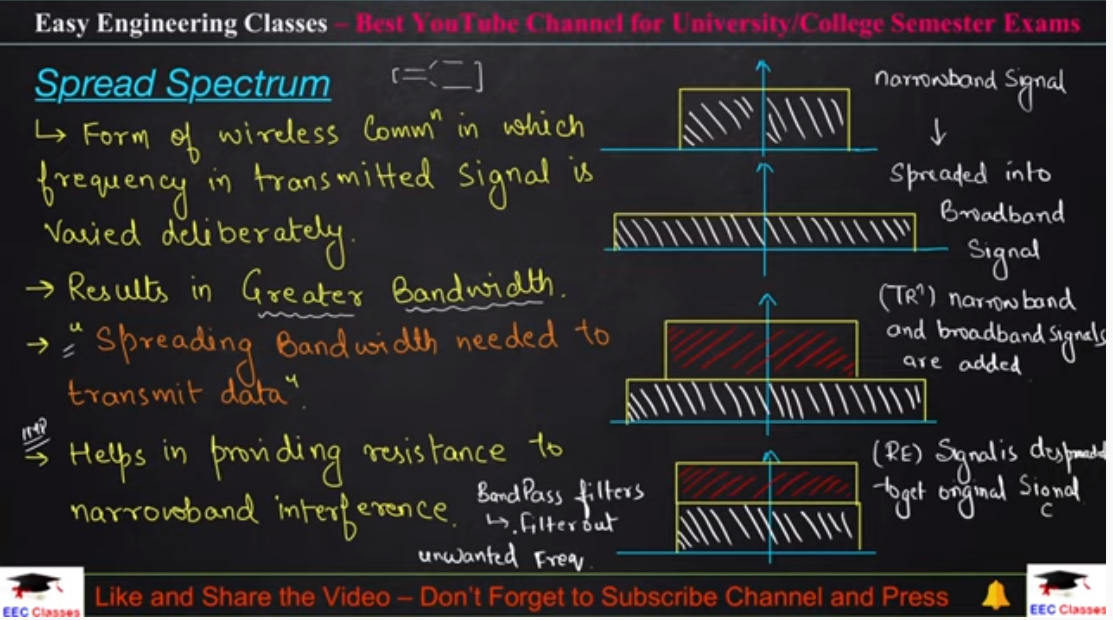 Easy Engineering Classes – Best YouTube Channel for University/College Semester Exams
Spread Spectrum
↳ Form of wireless Commⁿ in which
frequency in transmitted signal is
varied deliberately.
→ Results in Greater Bandwidth.
→ "Spreading Bandwidth needed to
transmit data".
IMP
→ Helps in providing resistance to
narrowband interference.
BandPass filters
↳ Filter out
unwanted Freq.
narrowband Signal
↓
Spreaded into
Broadband
Signal
(TRⁿ) narrowband
and broadband signals
are added
(RE) Signal is despreaded
to get original Signal
EEC Classes
Like and Share the Video – Don't Forget to Subscribe Channel and Press
EEC Classes